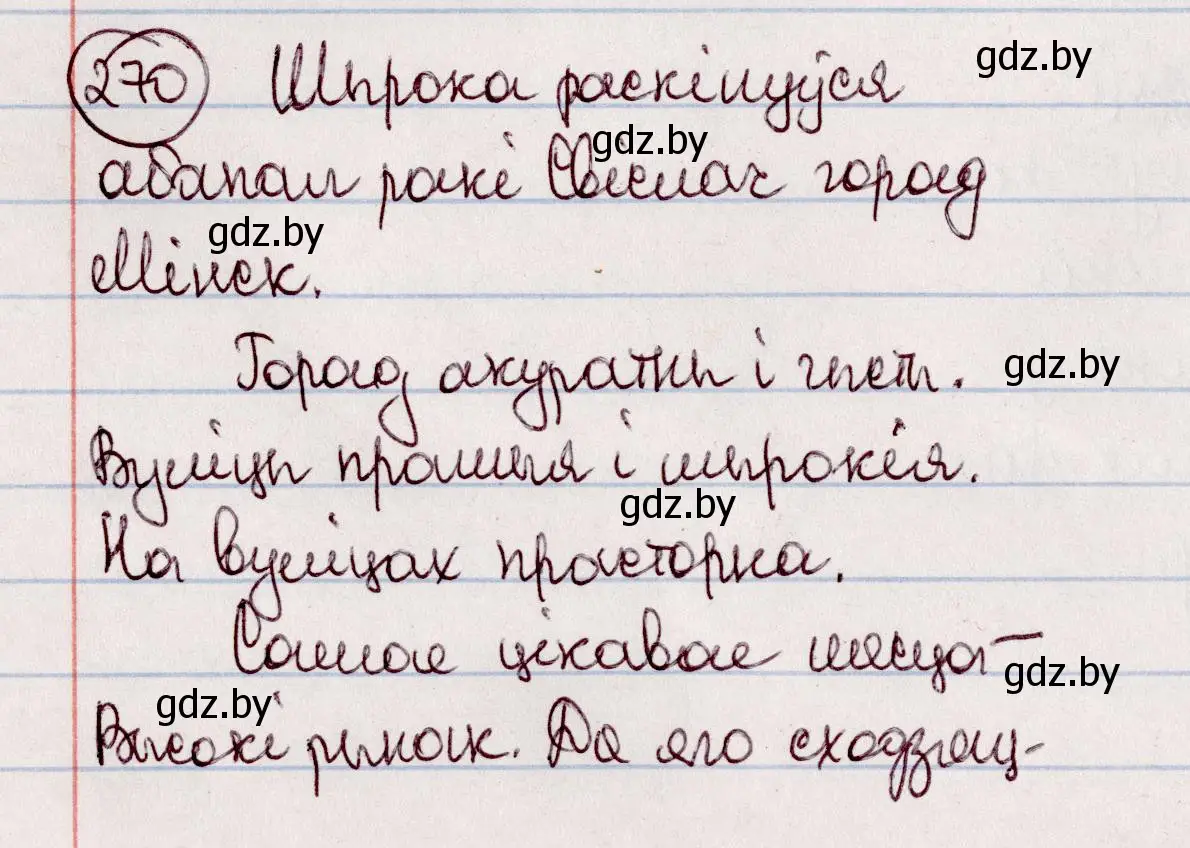 270 Шырока раскінуўся gdz.by
gdz.by
абапал ракі Свіслач горад
gdz.by
Мінск.
Горад акуратны і чысты. gdz.by
Вуліцы прамыя і шырокія.
gdz.by
На вуліцах прасторна.
Самае цікавае месца —
gdz.by
gdz.by
Высокі рынак. Да яго сходзяц-